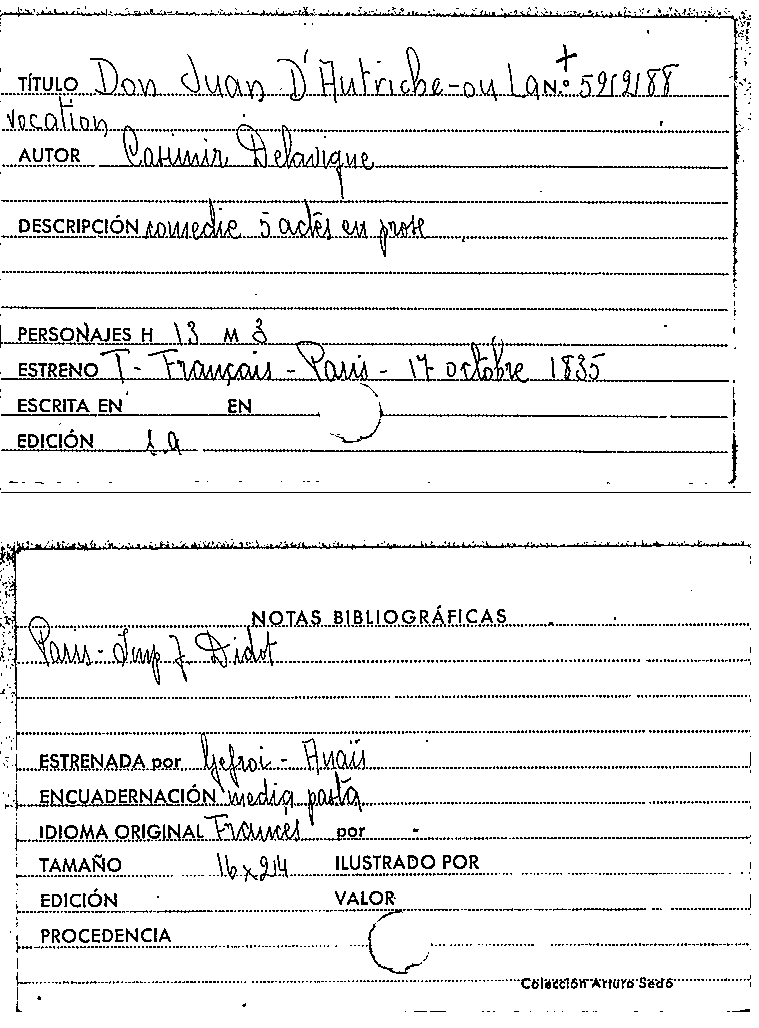 TÍTULO Don Juan D'Autriche-ou La N.º 59/2/88
vocation
AUTOR Casimir Delavigne
DESCRIPCIÓN comedie 5 actes en prose
PERSONAJES H 13 M 3
ESTRENO T- Français - Paris - 17 octobre 1835
ESCRITA EN EN
EDICIÓN 1.a
NOTAS BIBLIOGRÁFICAS
Paris - Imp J. Didot
ESTRENADA por Gefroi - Anaïs
ENCUADERNACIÓN media pasta
IDIOMA ORIGINAL Francés por -
TAMAÑO 16 x 24 ILUSTRADO POR
EDICIÓN VALOR
PROCEDENCIA
Colección Arturo Sedó